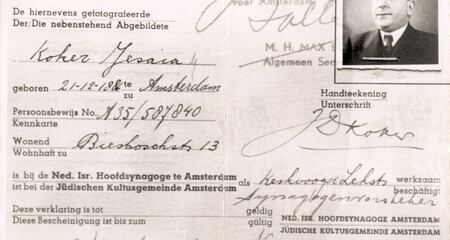 voor Amsterdam
De hiernevens gefotografeerde
Der/Die nebenstehend Abgebildete
M. H. MAX
Algemeen Sec
Koker Jesaia
geboren te Amsterdam
zu
Handteekening
Unterschrift
Persoonsbewijs No. A35/587840
Kennkarte
JDKoker
Wonend
Wohnhaft zu 13
is bij de Ned. Isr. Hoofdsynagoge te Amsterdam als werkzaam
ist bei der Jüdischen Kultusgemeinde Amsterdam beschäftigt.
Deze verklaring is tot geldig NED. ISR. HOOFDSYNAGOGE AMSTERDAM
Diese Bescheinigung ist bis zum gültig JÜDISCHE KULTUSGEMEINDE AMSTERDAM